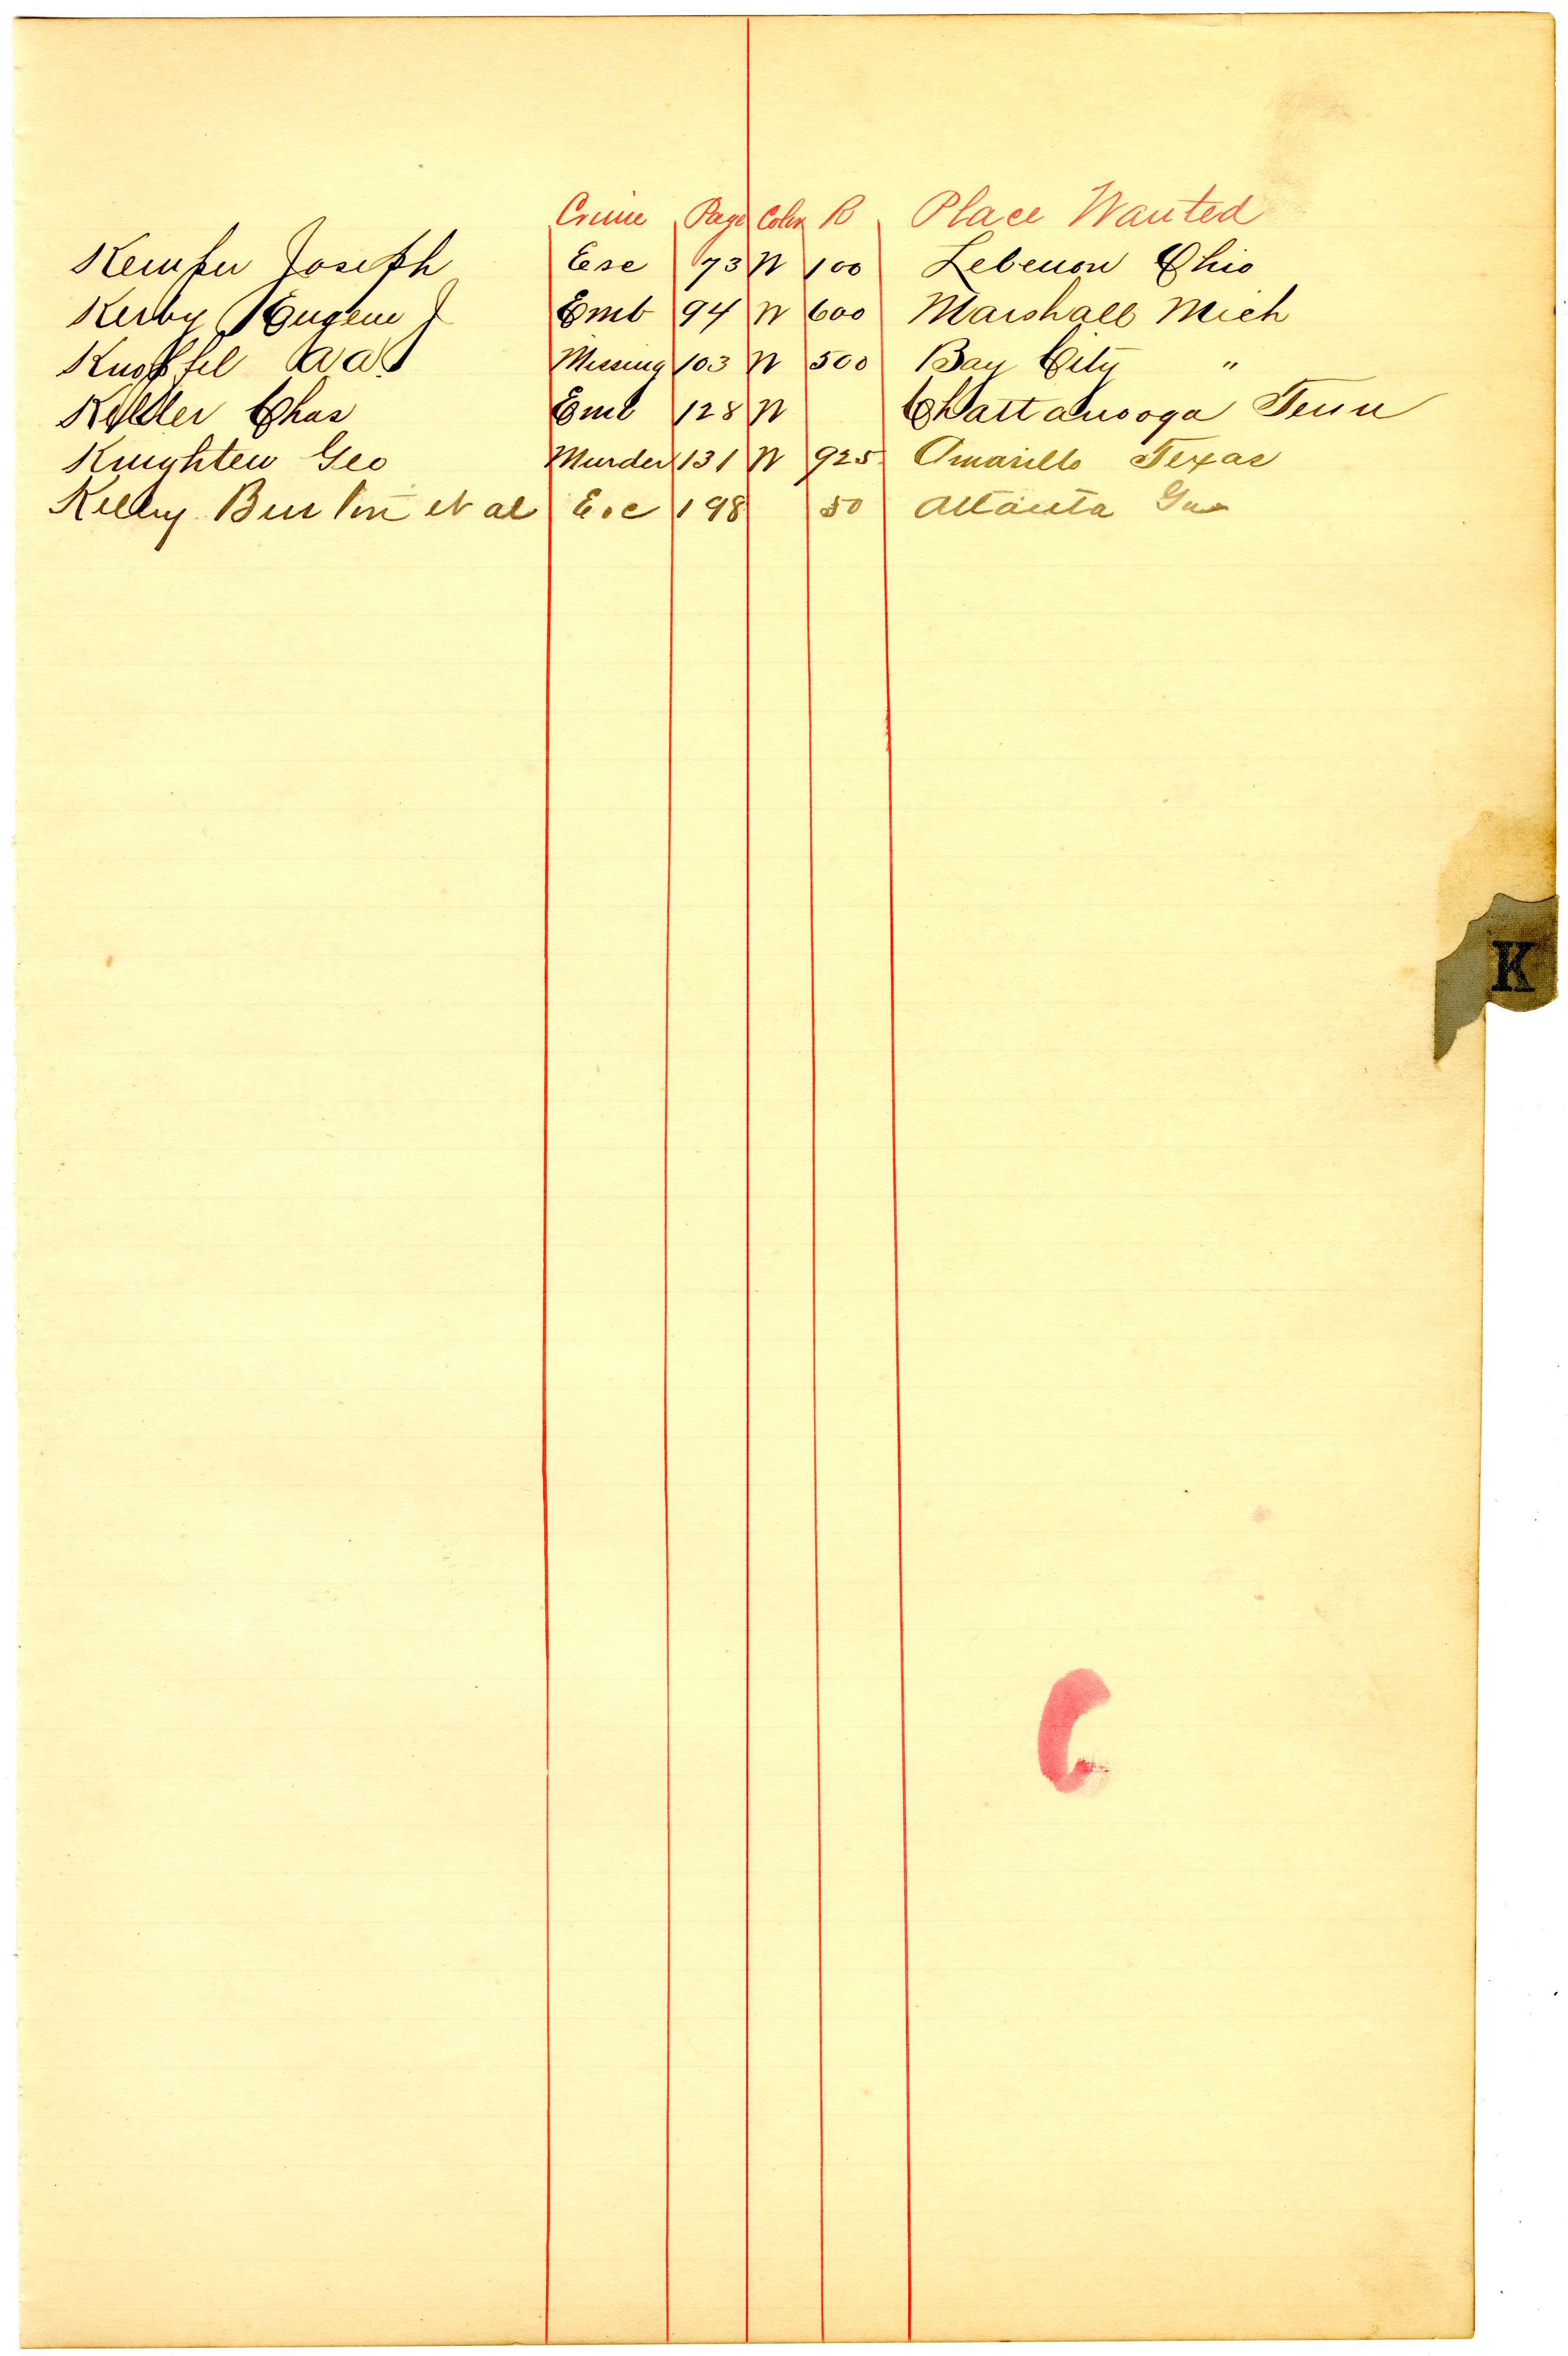 Crime Page Color R Place Wanted
Kemper Joseph Esc 73 W 100 Lebenon Ohio
Kerby Eugene J Emb 94 W 600 Marshall Mich
Knoffel Missing 103 W 500 Bay City "
Keller Chas Emb 128 W Chattanooga Tenn
Knighten Geo Murder 131 W 925 Amarillo Texas
Kelley Burton et al Esc 198 50 Atlanta Ga
K